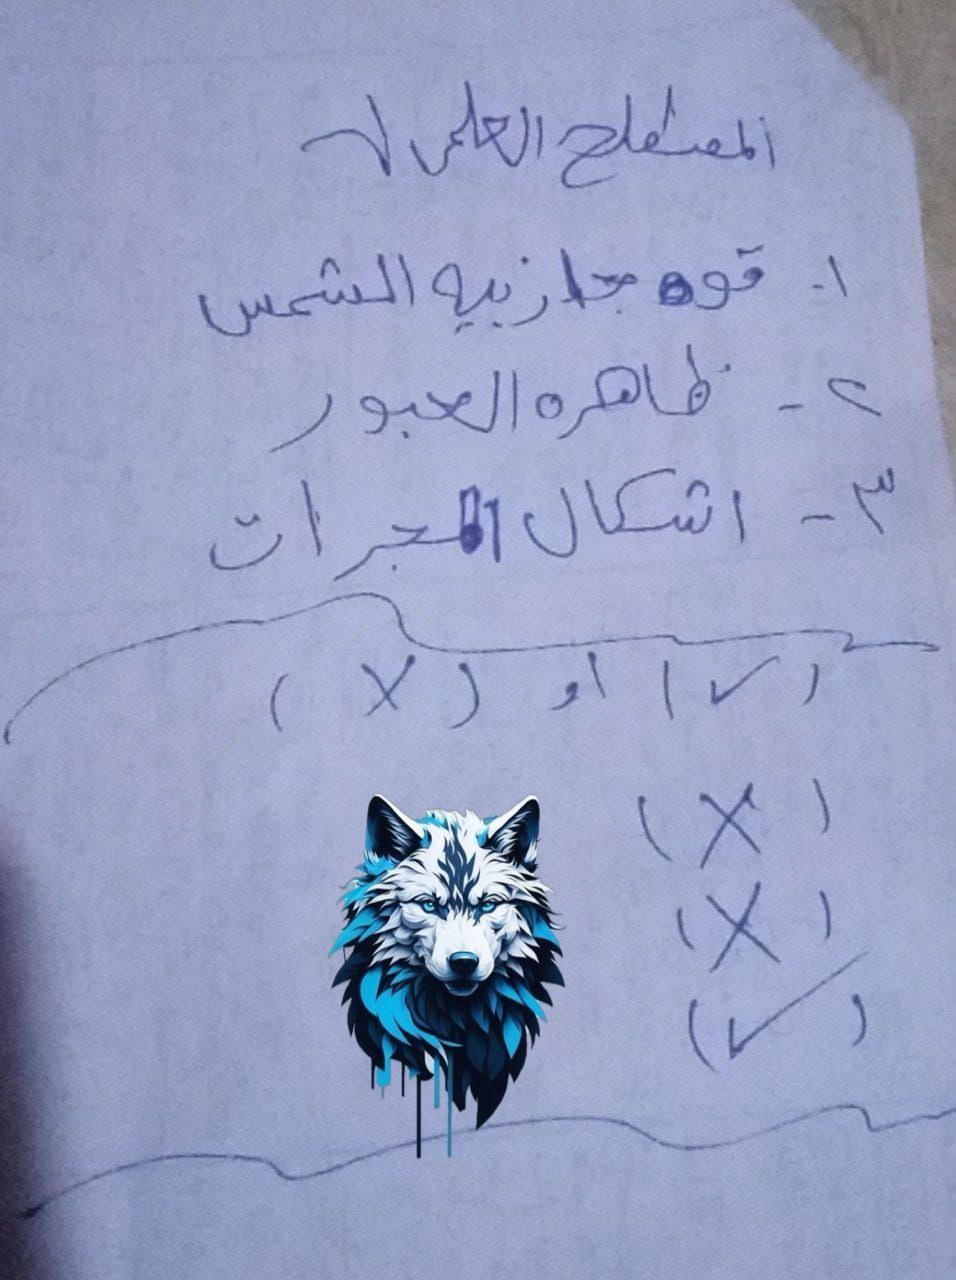 المصطلح العلمى
١- قوه جازبيه الشمس
٢- ظاهره العبور
٣- اشكال المجرات
(✓) او (X)
(X)
(X)
(✓)